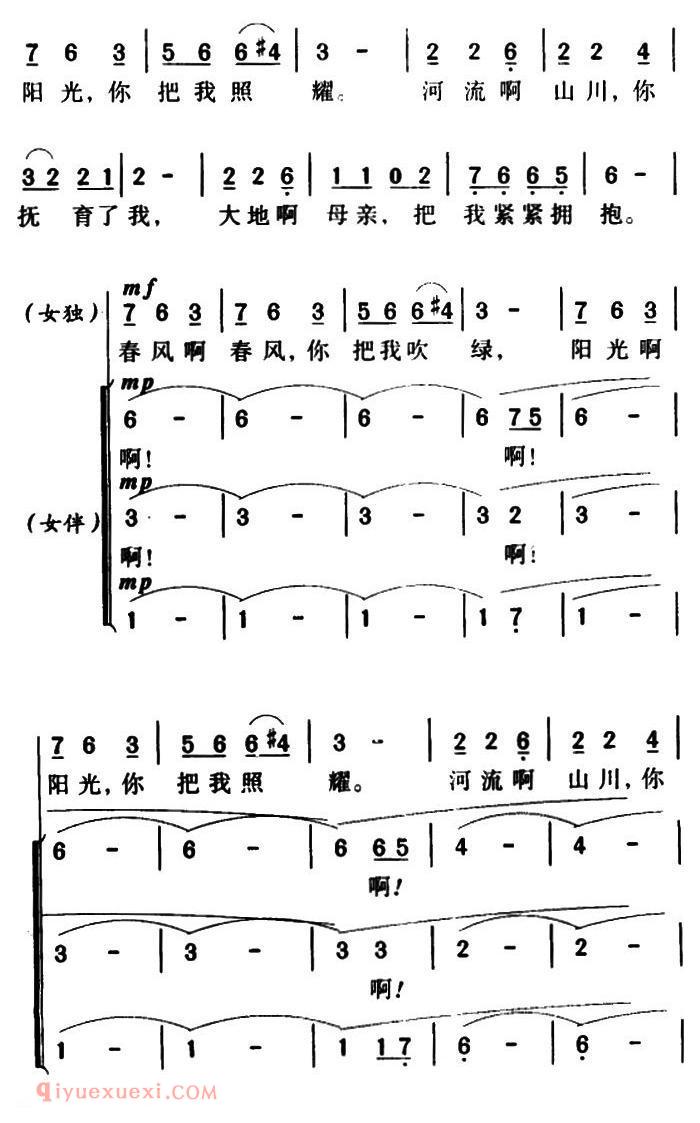 7 6 3 | 5 6 6 6 #4 | 3 - | 2 2 6 | 2 2 4 |
阳光，你 把我照 耀。 河流啊 山川，你
3 2 2 1 | 2 - | 2 2 6 | 1 1 0 2 | 7 6 6 5 | 6 - |
抚 育了我， 大地啊 母亲，把 我紧紧拥 抱。
mf
（女独） 7 6 3 | 7 6 3 | 5 6 6 6 #4 | 3 - | 7 6 3
春风啊 春风，你 把我吹 绿， 阳光啊
mp
6 - | 6 - | 6 - | 6 7 5 | 6 -
啊！ 啊！
mp
（女伴） 3 - | 3 - | 3 - | 3 2 | 3 -
啊！ 啊！
mp
1 - | 1 - | 1 - | 1 7 | 1 -
7 6 3 | 5 6 6 6 #4 | 3 - | 2 2 6 | 2 2 4
阳光，你 把我照 耀。 河流啊 山川，你
6 - | 6 - | 6 6 5 | 4 - | 4 -
啊！
3 - | 3 - | 3 3 | 2 - | 2 -
啊！
1 - | 1 - | 1 1 7 | 6 - | 6 -
qiyuexuexi.COM